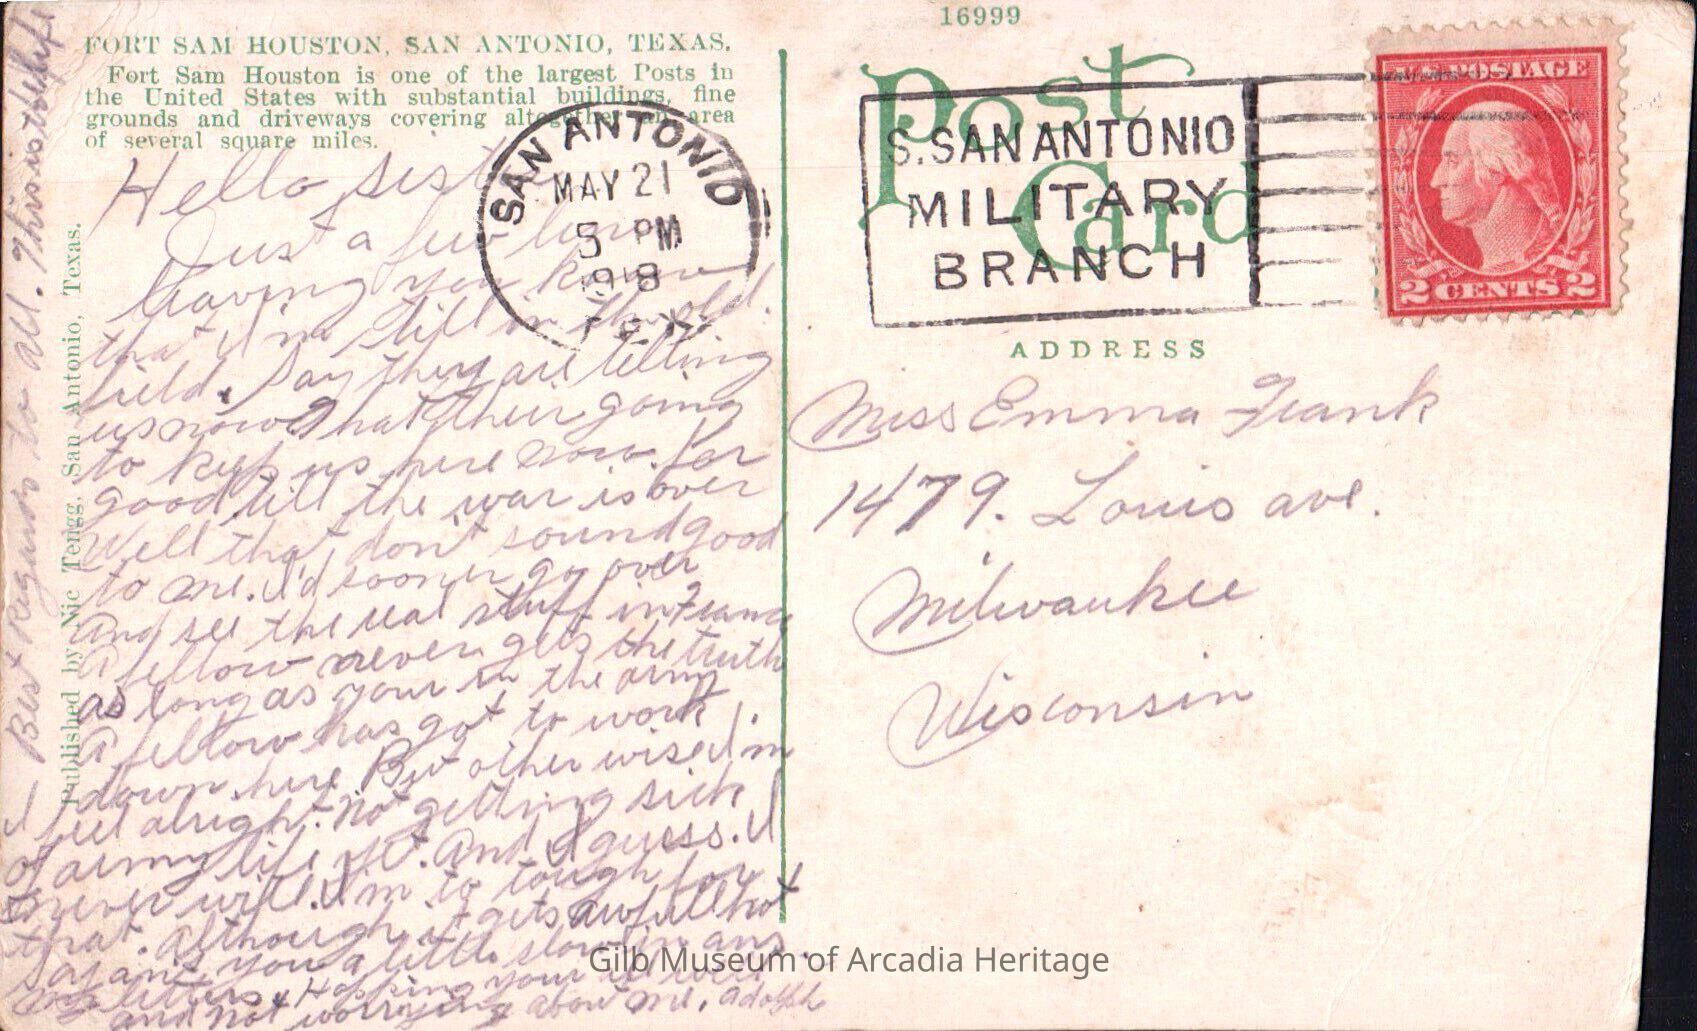 16999
FORT SAM HOUSTON, SAN ANTONIO, TEXAS.
Fort Sam Houston is one of the largest Posts in
the United States with substantial buildings, fine
grounds and driveways covering altogether an area
of several square miles.
Post Card
SAN ANTONIO
MAY 21
5 PM
1918
TEX.
S. SAN ANTONIO
MILITARY
BRANCH
U.S. POSTAGE
2 CENTS 2
ADDRESS
Miss Emma Frank
1479. Louis ave.
Milwaukee
Wisconsin
Hello sister
Just a few lines
leaving you know
that I'm still in the old
field. Say they are telling
us now that their going
to keep us here now. for
good till the war is over
Well that don't sound good
to me. I'd sooner go over
and see the real stuff in France
A fellow never gets the truth
as long as your in the army
A fellow has got to work
down here But other wise I'm
I feel alright. not getting sick
of army life yet. And I guess. I
never will. I'm to tough for
that. Although it gets awfull hot
Say are you a little slow in ans.
my letters. Hopping your is well
and not worrying about me. Adolph
Best Regards to all. This is the life
Published by Nic Tengg, San Antonio, Texas.
Gilb Museum of Arcadia Heritage